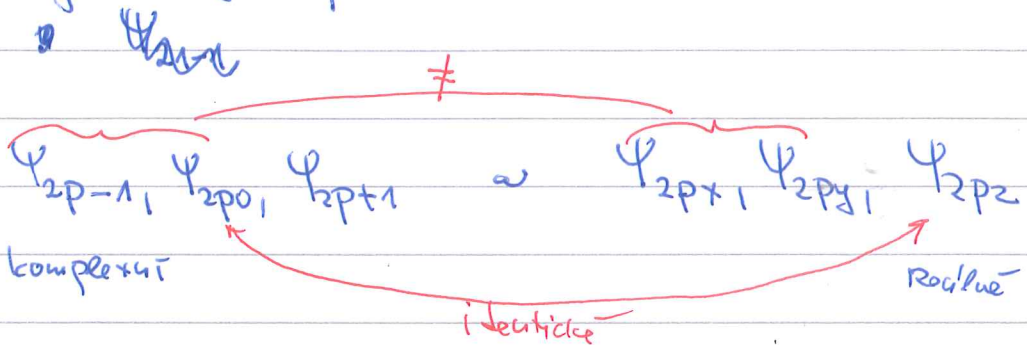 ≠
Ψ2p-1, Ψ2p0, Ψ2p+1 a Ψ2px, Ψ2py, Ψ2pz
komplexní reálné
identické